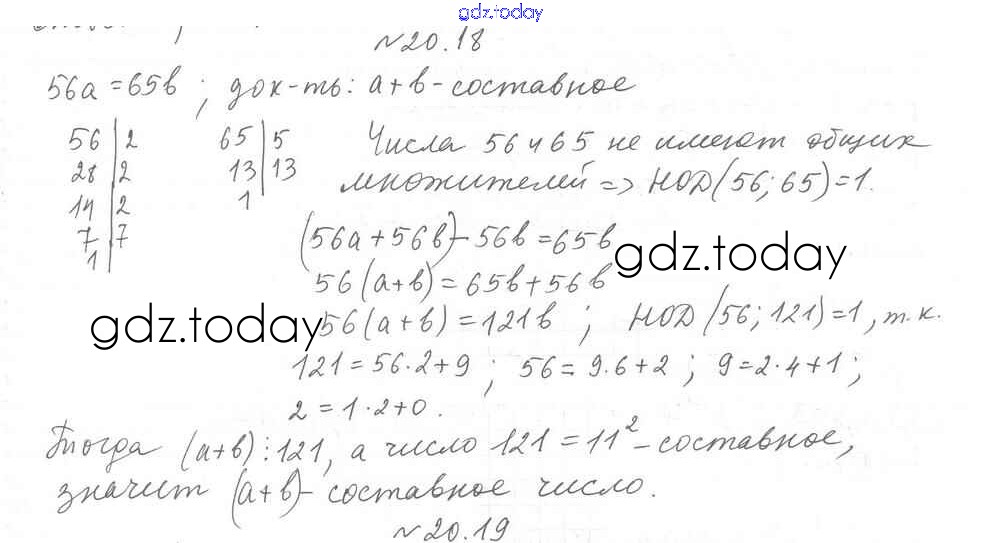 gdz.today
№20.18
56a = 65b ; док-ть: a+b - составное
56 | 2 65 | 5 Числа 56 и 65 не имеют общих
28 | 2 13 | 13 множителей => НОД(56; 65) = 1.
14 | 2 1
7 | 7 (56a + 56b) - 56b = 65b
1 56(a+b) = 65b + 56b gdz.today
gdz.today 56(a+b) = 121b ; НОД(56; 121) = 1, т.к.
121 = 56·2 + 9 ; 56 = 9·6 + 2 ; 9 = 2·4 + 1 ;
2 = 1·2 + 0.
Тогда (a+b) ⋮ 121, а число 121 = 11² - составное,
значит (a+b) - составное число.
№20.19